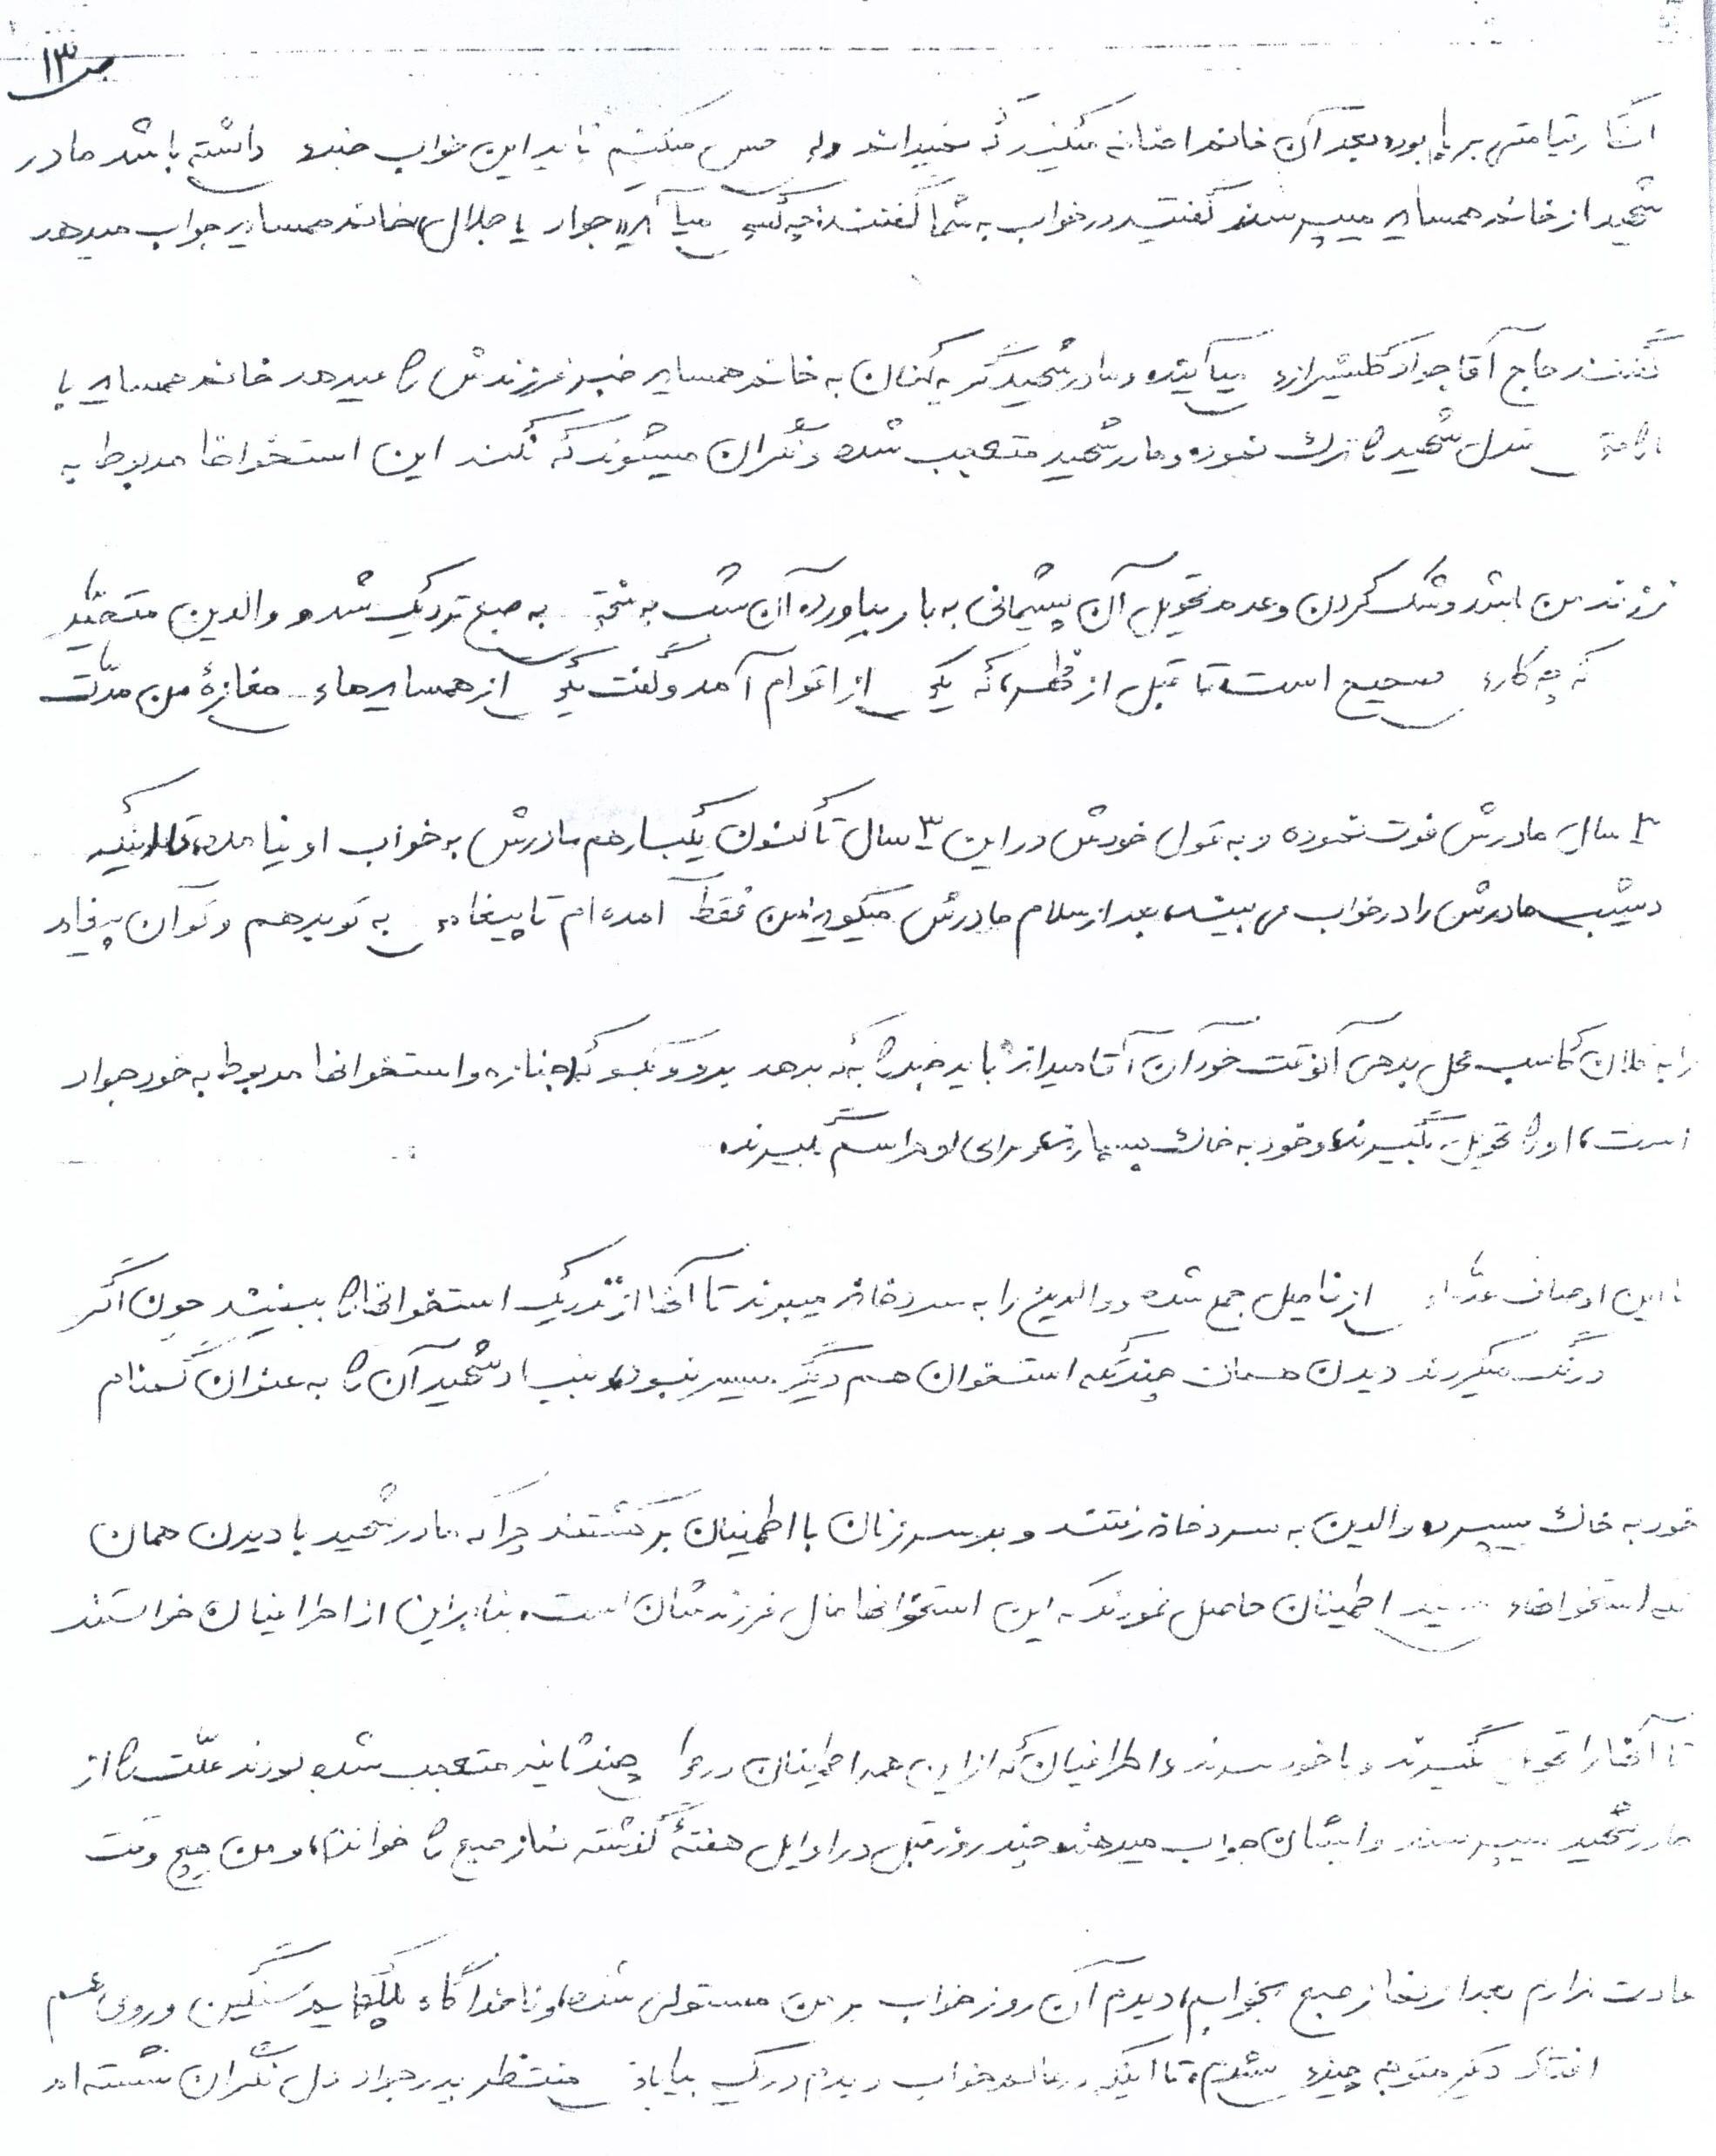 ص ۱۳
انگار قیامتی بر پا بوده بعد آن خانم اضافه میکنید که نمیدانم ولی حس میکنیم شاید این خواب خبری داشته باشد مادر
شهید از خانم همسایه میپرسند گفتید در خواب به شما گفتند چه کسی میآید، جواد یا جلال، خانم همسایه جواب میدهد
گفتند حاج آقا جواد کلشیرازی میآیند، و مادر شهید گریه کنان به خانم همسایه خبر فرزندش را میدهد خانم همسایه با
منزل شهید را ترک نموده و مادر شهید متعجب شده و نگران میشوند که نکند این استخوانها مربوط به
فرزند من باشد و شک کردن و عدم تحویل آن پشیمانی به بار بیاورد، آن شب به سختی به صبح نزدیک شد و والدین متحیّر
که چه کاری صحیح است، تا قبل از ظهر، که یکی از اقوام آمد و گفت یکی از همسایه‌های مغازهٔ من مدّت
۳ سال مادرش فوت نموده و به قول خودش در این ۳ سال تا کنون یکبار هم مادرش به خواب او نیامده، تا اینکه
دیشب مادرش را در خواب می بیند، بعد از سلام مادرش میگوید، من فقط آمده ام تا پیغامی به تو بدهم و تو آن پیغام
را به فلان کاسب محل بدهی آنوقت خود آن آقا میداند باید خبر را به که بدهد برو و بگو که جنازه و استخوانها مربوط به خود جواد
است، او را تحویل بگیرند، و خود به خاک بسپارند و برای او مراسم بگیرند.
با این اوصاف عدّه‌ای از فامیل جمع شده و والدین را به سردخانه میبرند تا آنها از نزدیک استخوانها را ببینند چون اگر
درنگ میکردند دیدن همان چند تکه استخوان هم دیگر میسر نبود، بنیاد شهید آن را به عنوان گمنام
خود به خاک میسپرد، والدین به سردخانه رفتند و بر سر زنان با اطمینان برگشتند چرا که مادر شهید با دیدن همان
اطمینان حاصل نمودند که این استخوانها مال فرزندشان است، بنابراین از اطرافیان خواستند
تا آنها را تحویل بگیرند و با خود ببرند و اطرافیان که از این همه اطمینان در چند ثانیه متعجب شده بودند علّت را از
مادر شهید میپرسند و ایشان جواب میدهند، چند روز قبل در اوایل هفتهٔ گذشته نماز صبح را خواندم، و من هیچ وقت
عادت ندارم بعد از نماز صبح بخوابم، دیدم آن روز خواب بر من مستولی شده، و ناخودآگاه پلکهایم سنگین و روی هم
افتاد دیگر متوجه چیزی نشدم، تا اینکه در عالم خواب دیدم در یک بیابانی منتظر پدر جواد دل نگران نشسته ام